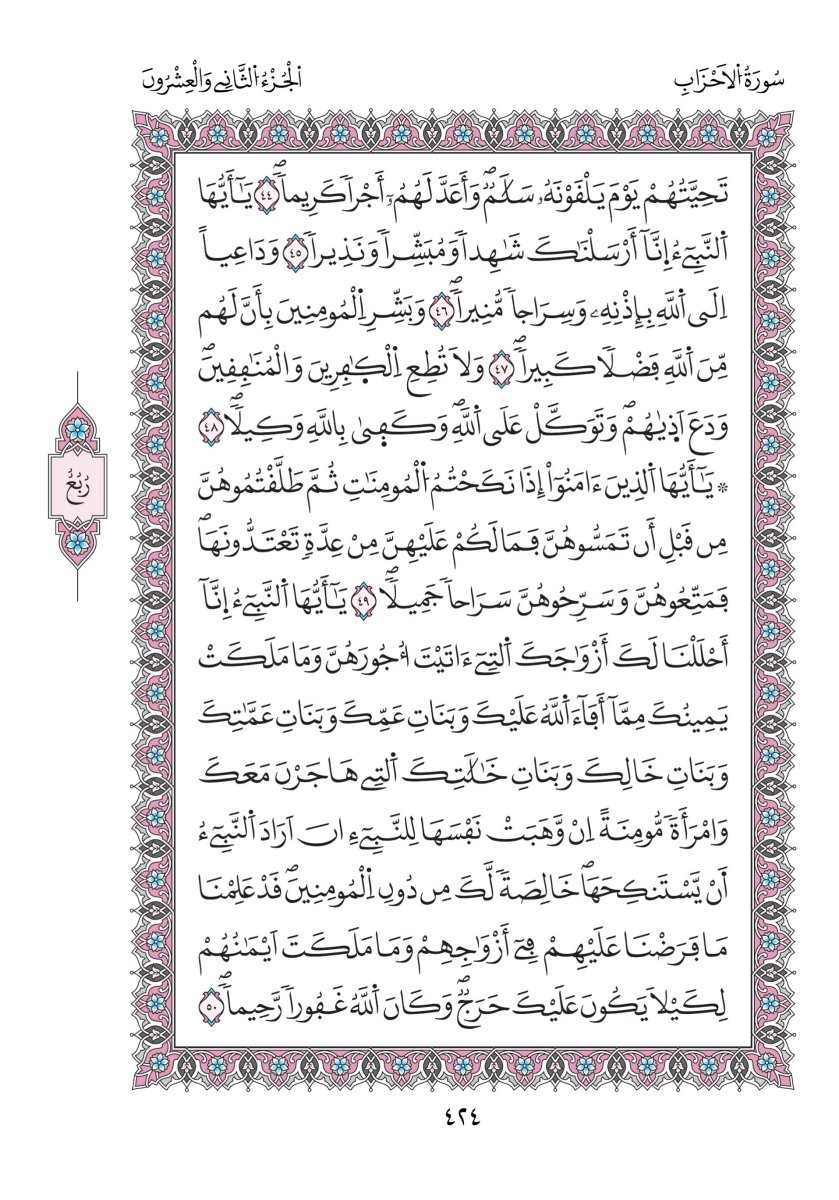 سُورَةُ الْأَحْزَابِ
الْجُزْءُ الثَّانِي وَالْعِشْرُونَ
تَحِيَّتُهُمْ يَوْمَ يَلْقَوْنَهُۥ سَلَٰمٞۖ وَأَعَدَّ لَهُمُۥٓ أَجْراٗ كَرِيماٗۖ ٤٤ يَٰٓأَيُّهَا
اَ۬لنَّبِيٓءُ إِنَّآ أَرْسَلْنَٰكَ شَٰهِداٗ وَمُبَشِّراٗ وَنَذِيراٗ ٤٥ وَدَاعِياً
اِلَى اَ۬للَّهِ بِإِذْنِهِۦ وَسِرَاجاٗ مُّنِيراٗۖ ٤٦ وَبَشِّرِ اِ۬لْمُومِنِينَ بِأَنَّ لَهُم
مِّنَ اَ۬للَّهِ فَضْلاٗ كَبِيراٗۖ ٤٧ وَلَا تُطِعِ اِ۬لْكٰ۪فِرِينَ وَالْمُنَٰفِقِينَۖ
وَدَعَ اَذ۪يٰهُمْۖ وَتَوَكَّلْ عَلَى اَ۬للَّهِۖ وَكَف۪يٰ بِاللَّهِ وَكِيلاٗۖ ٤٨
۞ يَٰٓأَيُّهَا اَ۬لذِينَ ءَامَنُوٓاْ إِذَا نَكَحْتُمُ اُ۬لْمُومِنَٰتِ ثُمَّ طَلَّقْتُمُوهُنَّ
مِن قَبْلِ أَن تَمَسُّوهُنَّ فَمَا لَكُمْ عَلَيْهِنَّ مِنْ عِدَّةٖ تَعْتَدُّونَهَاۖ
فَمَتِّعُوهُنَّ وَسَرِّحُوهُنَّ سَرَاحاٗ جَمِيلاٗۖ ٤٩ يَٰٓأَيُّهَا اَ۬لنَّبِيٓءُ إِنَّآ
أَحْلَلْنَا لَكَ أَزْوَٰجَكَ اَ۬لتِےٓ ءَاتَيْتَ أُجُورَهُنَّ وَمَا مَلَكَتْ
يَمِينُكَ مِمَّآ أَفَآءَ اَ۬للَّهُ عَلَيْكَ وَبَنَاتِ عَمِّكَ وَبَنَاتِ عَمَّٰتِكَ
وَبَنَاتِ خَالِكَ وَبَنَاتِ خَٰلَٰتِكَ اَ۬لتِے هَاجَرْنَ مَعَكَ
وَامْرَأَةٗ مُّومِنَةً اِنْ وَّهَبَتْ نَفْسَهَا لِلنَّبِيٓءِ انَ اَرَادَ اَ۬لنَّبِيٓءُ
أَنْ يَّسْتَنكِحَهَاۖ خَالِصَةٗ لَّكَ مِن دُونِ اِ۬لْمُومِنِينَۖ قَدْ عَلِمْنَا
مَا فَرَضْنَا عَلَيْهِمْ فِےٓ أَزْوَٰجِهِمْ وَمَا مَلَكَتَ اَيْمَٰنُهُمْ
لِكَيْلَا يَكُونَ عَلَيْكَ حَرَجٞۖ وَكَانَ اَ۬للَّهُ غَفُوراٗ رَّحِيماٗۖ ٥٠
رُبُعُ
٤٢٤